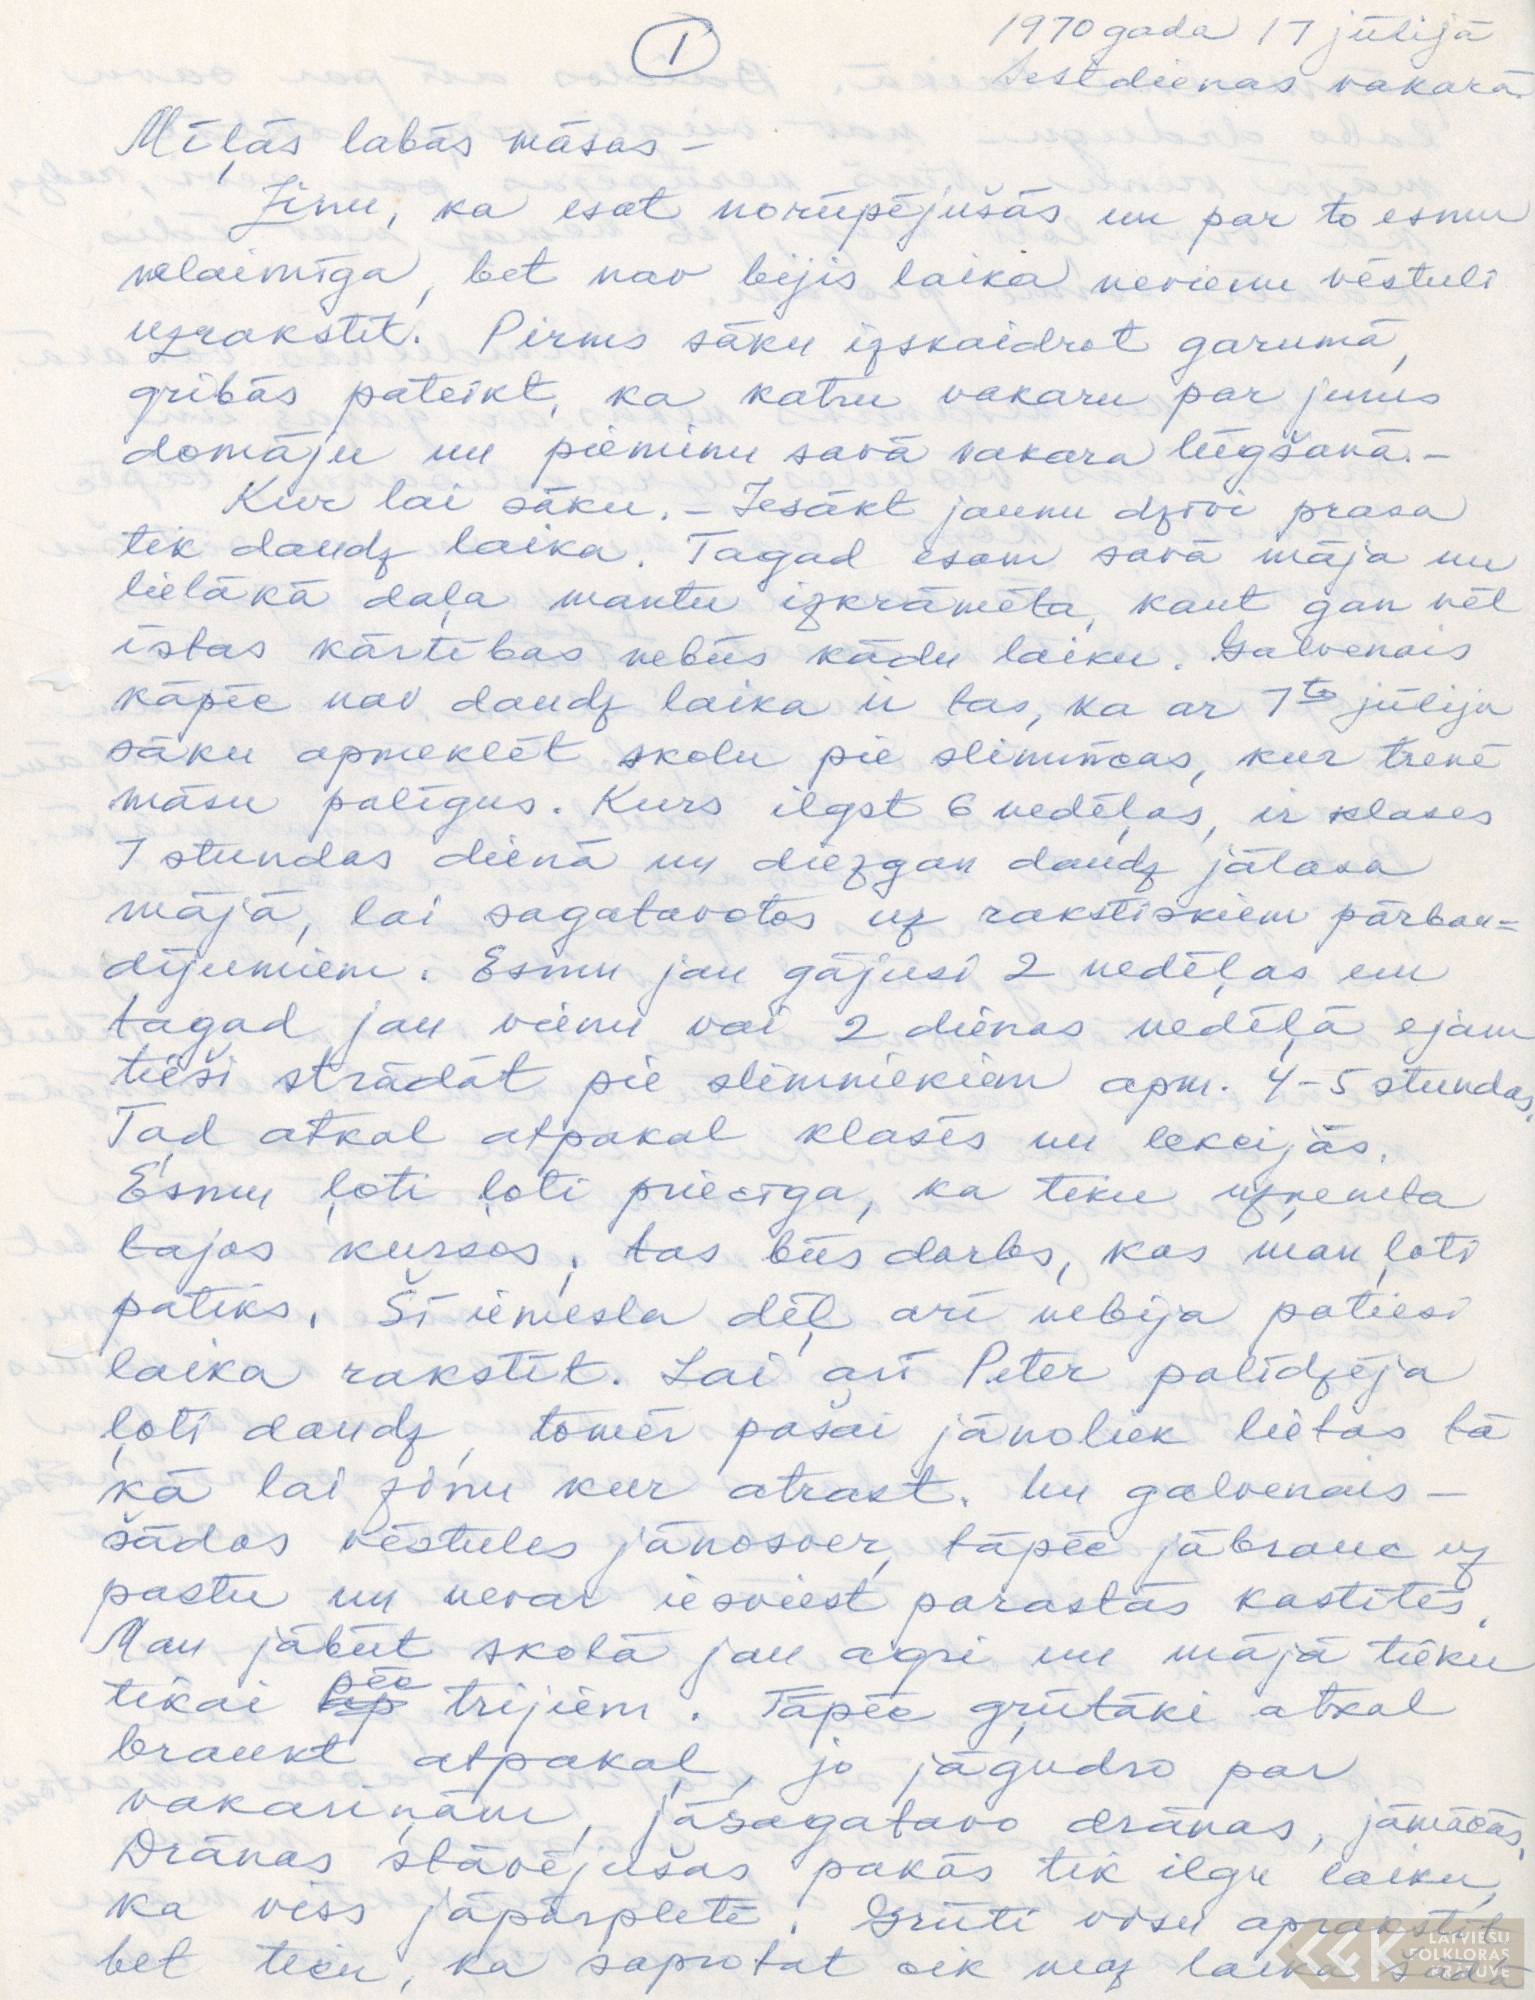 1
1970 gada 17 jūlijā
Sestdienas vakarā.
Mīļās labās māsas –
Zinu, ka esat norūpējušās un par to esmu
nelaimīga, bet nav bijis laika nevienu vēstuli
uzrakstīt. Pirms sāku izskaidrot garumā,
gribās pateikt, ka katru vakaru par jums
domāju un pieminu savā vakara lūgšanā. –
Kur lai sāku. – Iesākt jaunu dzīvi prasa
tik daudz laika. Tagad esam savā māja un
lielākā daļa mantu izkrāmēta, kaut gan vēl
īstas kārtības nebūs kādu laiku. Galvenais
kāpēc nav daudz laika ir tas, ka ar 7to jūliju
sāku apmeklēt skolu pie slimnīcas, kur trenē
māsu palīgus. Kurs ilgst 6 nedēļas, ir klases
7 stundas dienā un diezgan daudz jālasa
mājā, lai sagatavotos uz rakstiskiem pārbau=
dījumiem. Esmu jau gājusi 2 nedēļas un
tagad jau vienu vai 2 dienas nedēļā ejam
tieši strādāt pie slimniekiem apm. 4-5 stundas.
Tad atkal atpakaļ klasēs un lekcijās.
Esmu ļoti ļoti priecīga, ka tiku uzņemta
tajos kursos, tas būs darbs, kas man ļoti
patiks. Šī iemesla dēļ arī nebija patiesi
laika rakstīt. Lai arī Peter palīdzēja
ļoti daudz, tomēr pašai jānoliek lietas tā
kā lai zinu kur atrast. Un galvenais –
šādas vēstules jānosver, tāpēc jābrauc uz
pastu un nevar iesviest parastās kastītēs.
Man jābūt skolā jau agri un mājā tieku
tikai pēc trijiem. Tāpēc grūtāki atkal
braukt atpakaļ, jo jāgudro par
vakariņām, jāsagatavo drānas, jāmācās.
Drānas stāvējušas pakās tik ilgu laiku,
ka viss jāpārpletē. Grūti visu aprakstīt
bet ticu, ka saprotat cik maz laika šādā
LATVIEŠU
FOLKLORAS
KRĀTUVE